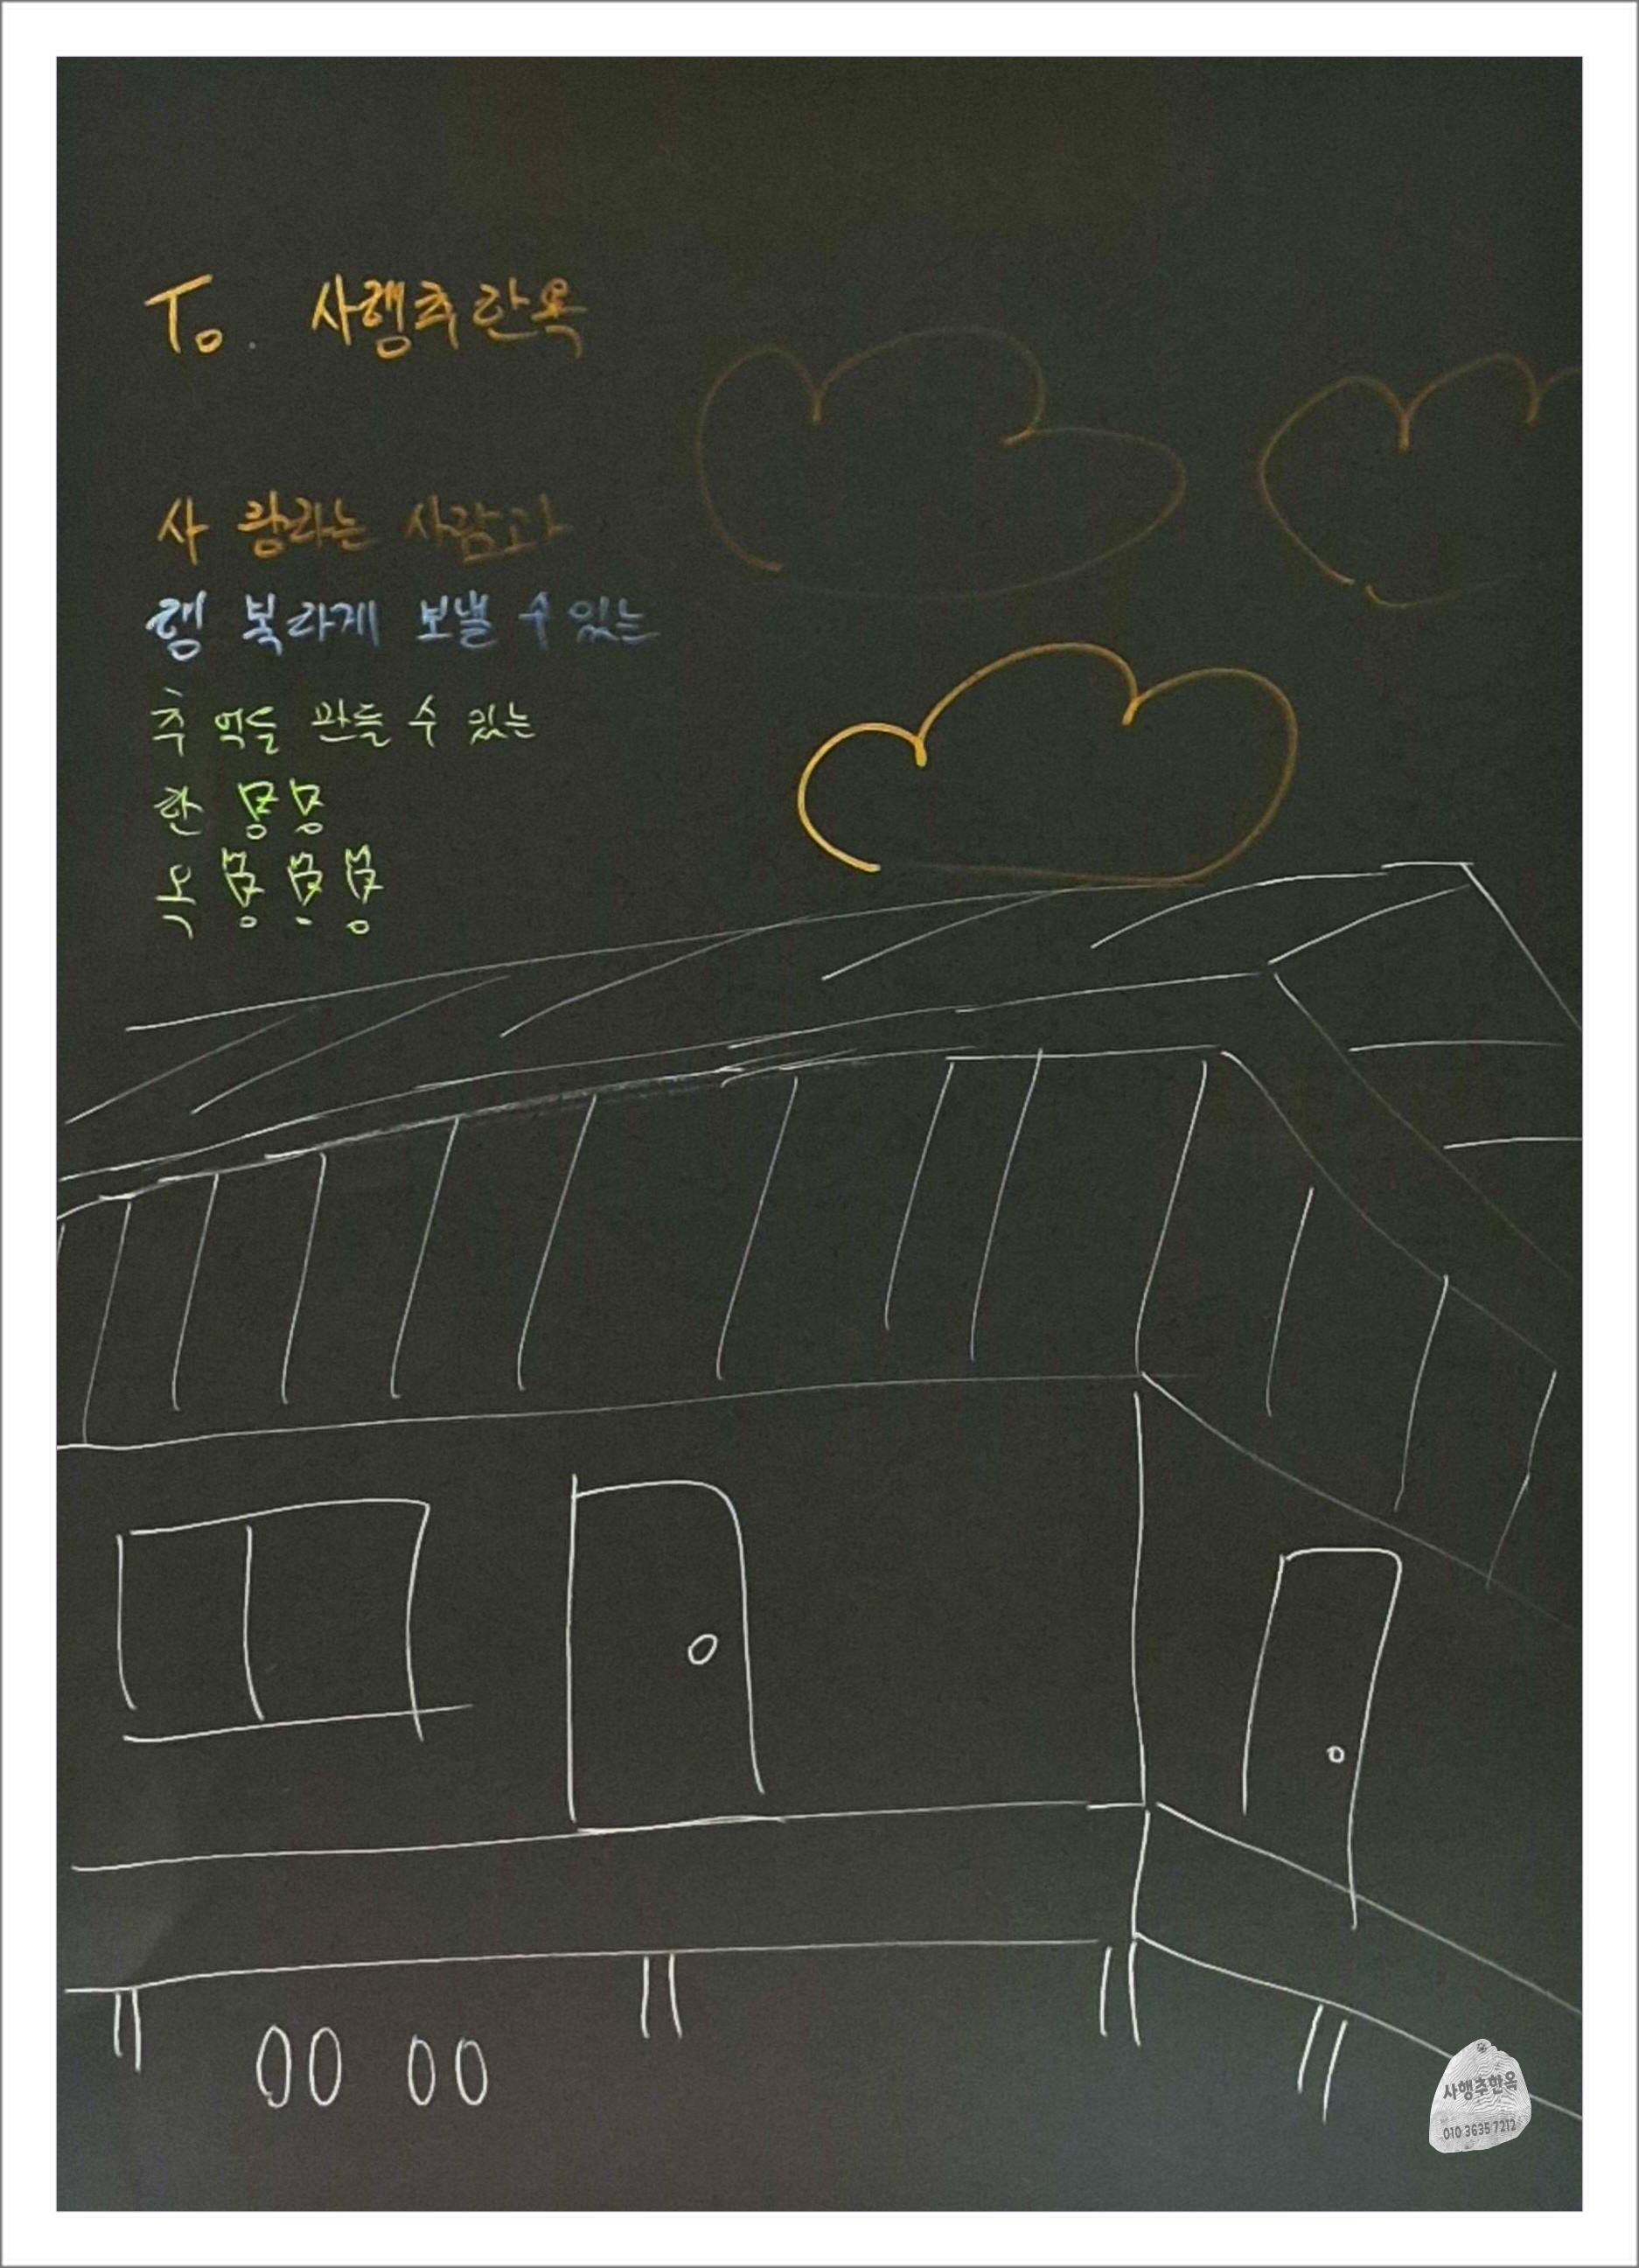 To. 사행추한옥
사 랑하는 사람과
행 복하게 보낼 수 있는
추 억들 만들 수 있는
한
옥
사행추한옥
010 3635 7212